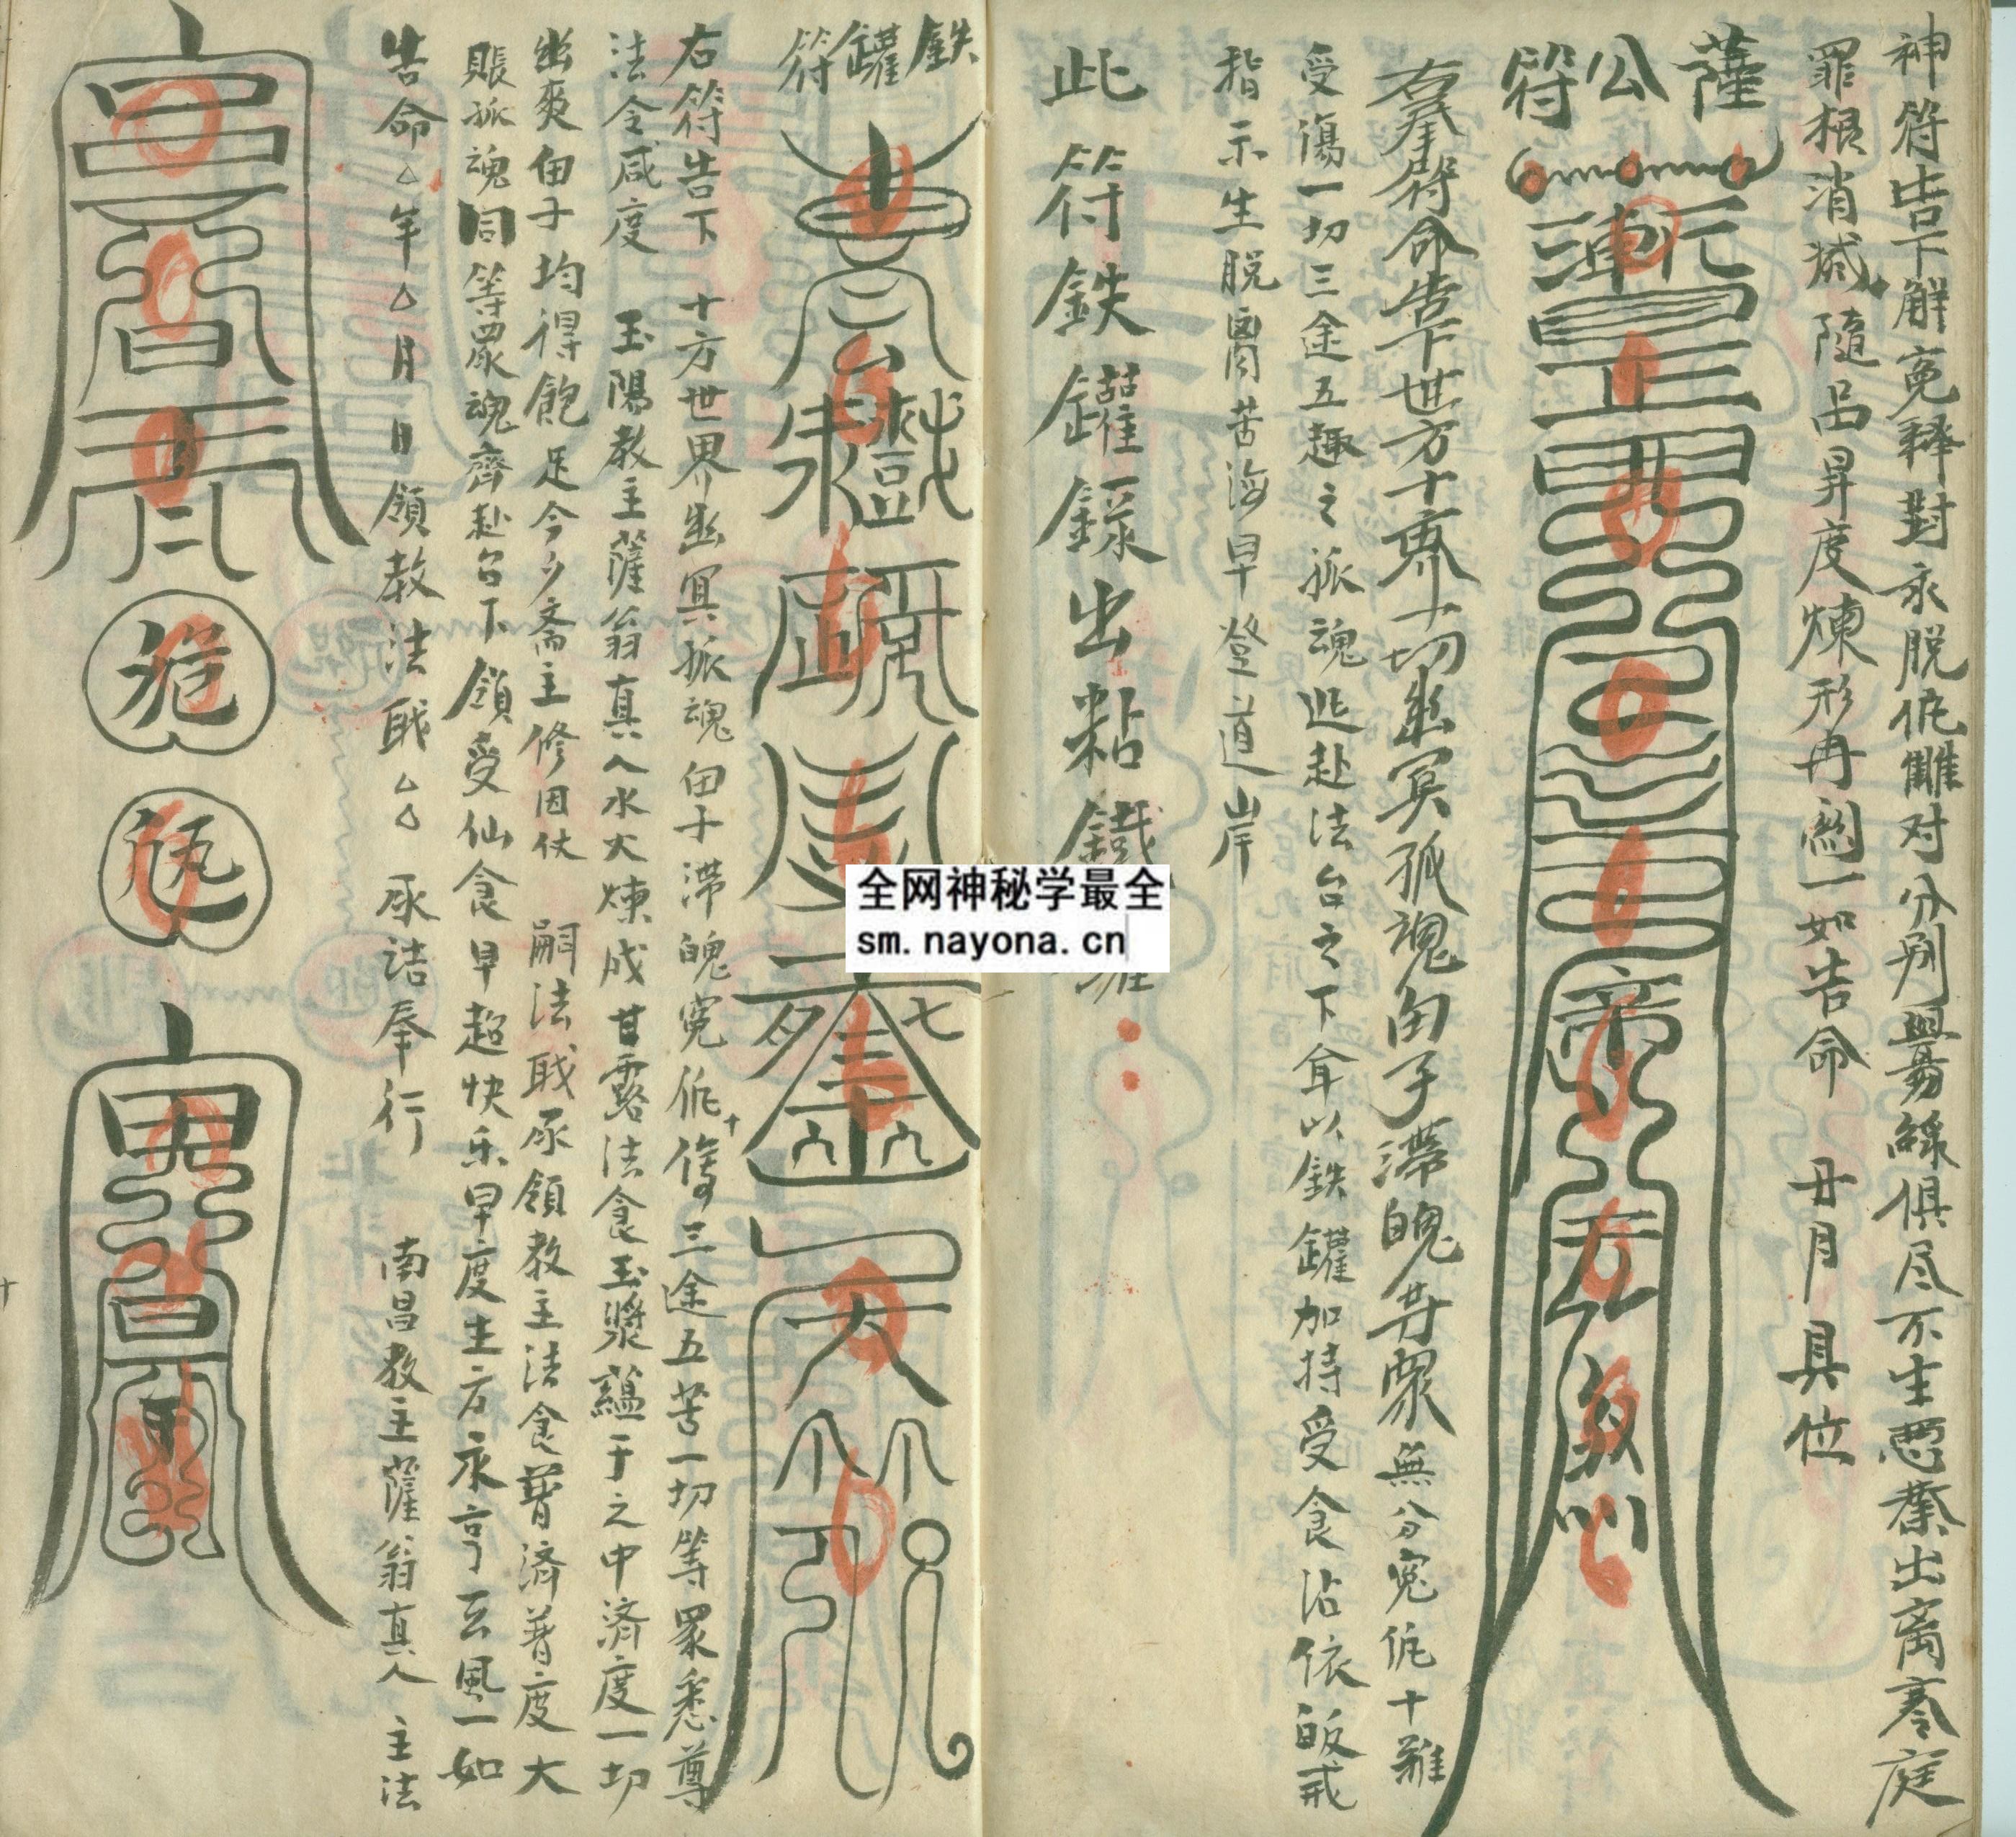 神符告下解冤釋對永脫仇讎对分别曩緣俱尽不生惡業出离寒庭
罪根消滅隨品昇度煉形再一如告命 廿月 具位
薩公符
右奉符命告下世方十界十切幽冥孤魂由子滯魄廿眾無分冤仇十難
受傷一切三途五趣之孤魂赴法台之下食以鉄罐加持受食沾依皈戒
指示生脫苦海早登道岸
此符鉄罐錄出粘鐵
鉄罐符
右符告下 十方世界幽冥孤魂由子滯魄冤仇三途五苦一切等眾悉尊
法令咸度 玉陽教主薩翁真人水火煉成甘露法食玉漿蘊于之中濟度一切
幽爽由子均得飽足今夕斋主修因伏 嗣法職承領教主法食普濟普度大
賬孤魂同等眾魂齊赴台下領受仙食早超快乐早度生方永亨玄風一如
告命△年△月 日領教法職△△ 承誥奉行 南昌教主薩翁真人 主法
全网神秘学最全
sm.nayona.cn